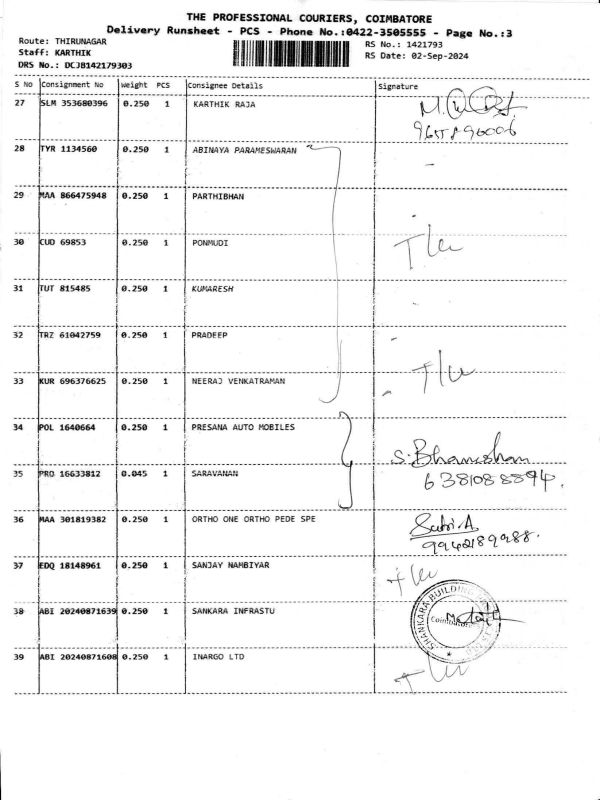 THE PROFESSIONAL COURIERS, COIMBATORE
Delivery Runsheet - PCS - Phone No.:0422-3505555 - Page No.:3
Route: THIRUNAGAR
Staff: KARTHIK
DRS No.: DCJB142179303
RS No.: 1421793
RS Date: 02-Sep-2024
S No Consignment No Weight PCS Consignee Details Signature
27 SLM 353680396 0.250 1 KARTHIK RAJA
28 TYR 1134560 0.250 1 ABINAYA PARAMESWARAN
29 MAA 866475948 0.250 1 PARTHIBHAN
30 CUD 69853 0.250 1 PONMUDI
31 TUT 815485 0.250 1 KUMARESH
32 TRZ 61042759 0.250 1 PRADEEP
33 KUR 696376625 0.250 1 NEERAJ VENKATRAMAN
34 POL 1640664 0.250 1 PRESANA AUTO MOBILES
S. Bhaneshan
35 PRO 16633812 0.045 1 SARAVANAN
6381088894.
36 MAA 301819382 0.250 1 ORTHO ONE ORTHO PEDE SPE
9942189988.
37 EDQ 18148961 0.250 1 SANJAY NAMBIYAR
38 ABI 20240871639 0.250 1 SANKARA INFRASTU
SHANKARA BUILDING
39 ABI 20240871608 0.250 1 INARGO LTD